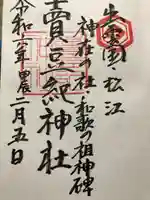 出雲國 松江
神在の社 和歌の祖神碑
賣豆紀神社
令和六年 二月五日